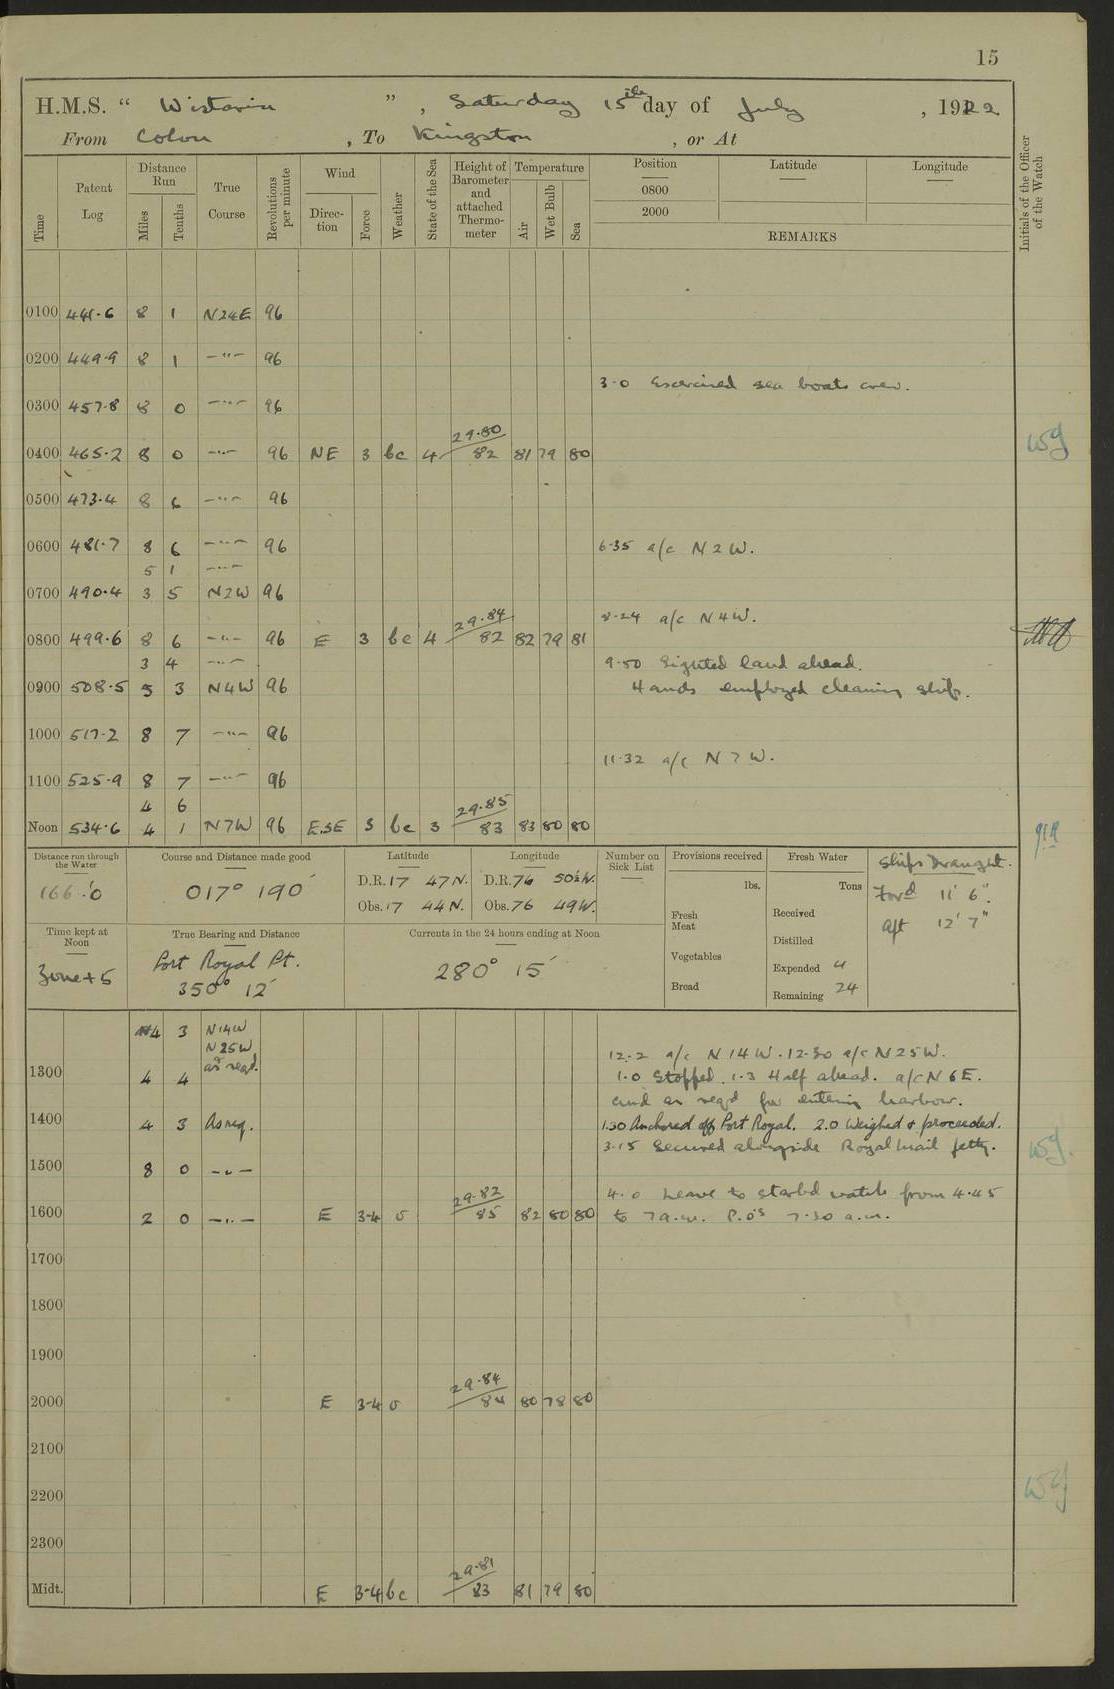 15
H.M.S. " Wistaria " , Saturday 15th day of July , 1922
From Colon , To Kingston , or At
Time
Patent Log
Distance Run
Miles
Tenths
True Course
Revolutions per minute
Wind
Direction
Force
Weather
State of the Sea
Height of Barometer and attached Thermometer
Temperature
Air
Wet Bulb
Sea
Position
0800
2000
Latitude
Longitude
REMARKS
Initials of the Officer of the Watch
0100 441.6 8 1 N24E 96
0200 449.9 8 1 —"— 96
3.0 Exercised sea boats crew.
0300 457.8 8 0 —"— 96
0400 465.2 8 0 —"— 96 NE 3 bc 4 29.80 82 81 79 80
0500 473.4 8 6 —"— 96
0600 481.7 8 6 —"— 96 6.35 a/c N2W.
5 1 —"—
0700 490.4 3 5 N2W 96
8.24 a/c N4W.
0800 499.6 8 6 —"— 96 E 3 bc 4 29.84 82 82 79 81
3 4 —"— 9.50 Sighted land ahead.
0900 508.5 5 3 N4W 96 Hands employed cleaning ship.
1000 517.2 8 7 —"— 96
11.32 a/c N7W.
1100 525.9 8 7 —"— 96
4 6
Noon 534.6 4 1 N7W 96 ESE 3 bc 3 29.85 83 83 80 80
Distance run through the Water
166.'0
Course and Distance made good
017° 190'
Latitude
D.R. 17 47 N.
Obs. 17 44 N.
Longitude
D.R. 76 50½ W.
Obs. 76 49 W.
Number on Sick List
Provisions received
lbs.
Fresh Meat
Vegetables
Bread
Fresh Water
Tons
Received
Distilled
Expended 4
Remaining 24
Ships Draught.
Ford 11' 6".
Aft 12' 7"
Time kept at Noon
Zone + 5
True Bearing and Distance
Port Royal Pt.
350° 12'
Currents in the 24 hours ending at Noon
280° 15'
4 3 N14W
N25W
as reqd.
12.2 a/c N14W. 12.30 a/c N25W.
1300 4 4 1.0 Stopped. 1.3 Half ahead. a/c N6E.
and as req'd for entering harbour.
1400 4 3 As req. 1.30 Anchored off Port Royal. 2.0 Weighed & proceeded.
3.15 Secured alongside Royal Mail jetty.
1500 8 0 —"—
4.0 Leave to starbd watch from 4.45
1600 2 0 —"— E 3-4 o 29.82 85 82 80 80 to 7 a.m. P.O's 7.30 a.m.
1700
1800
1900
2000 E 3-4 o 29.84 84 80 78 80
2100
2200
2300
Midt. E 3-4 bc 29.81 83 81 79 80